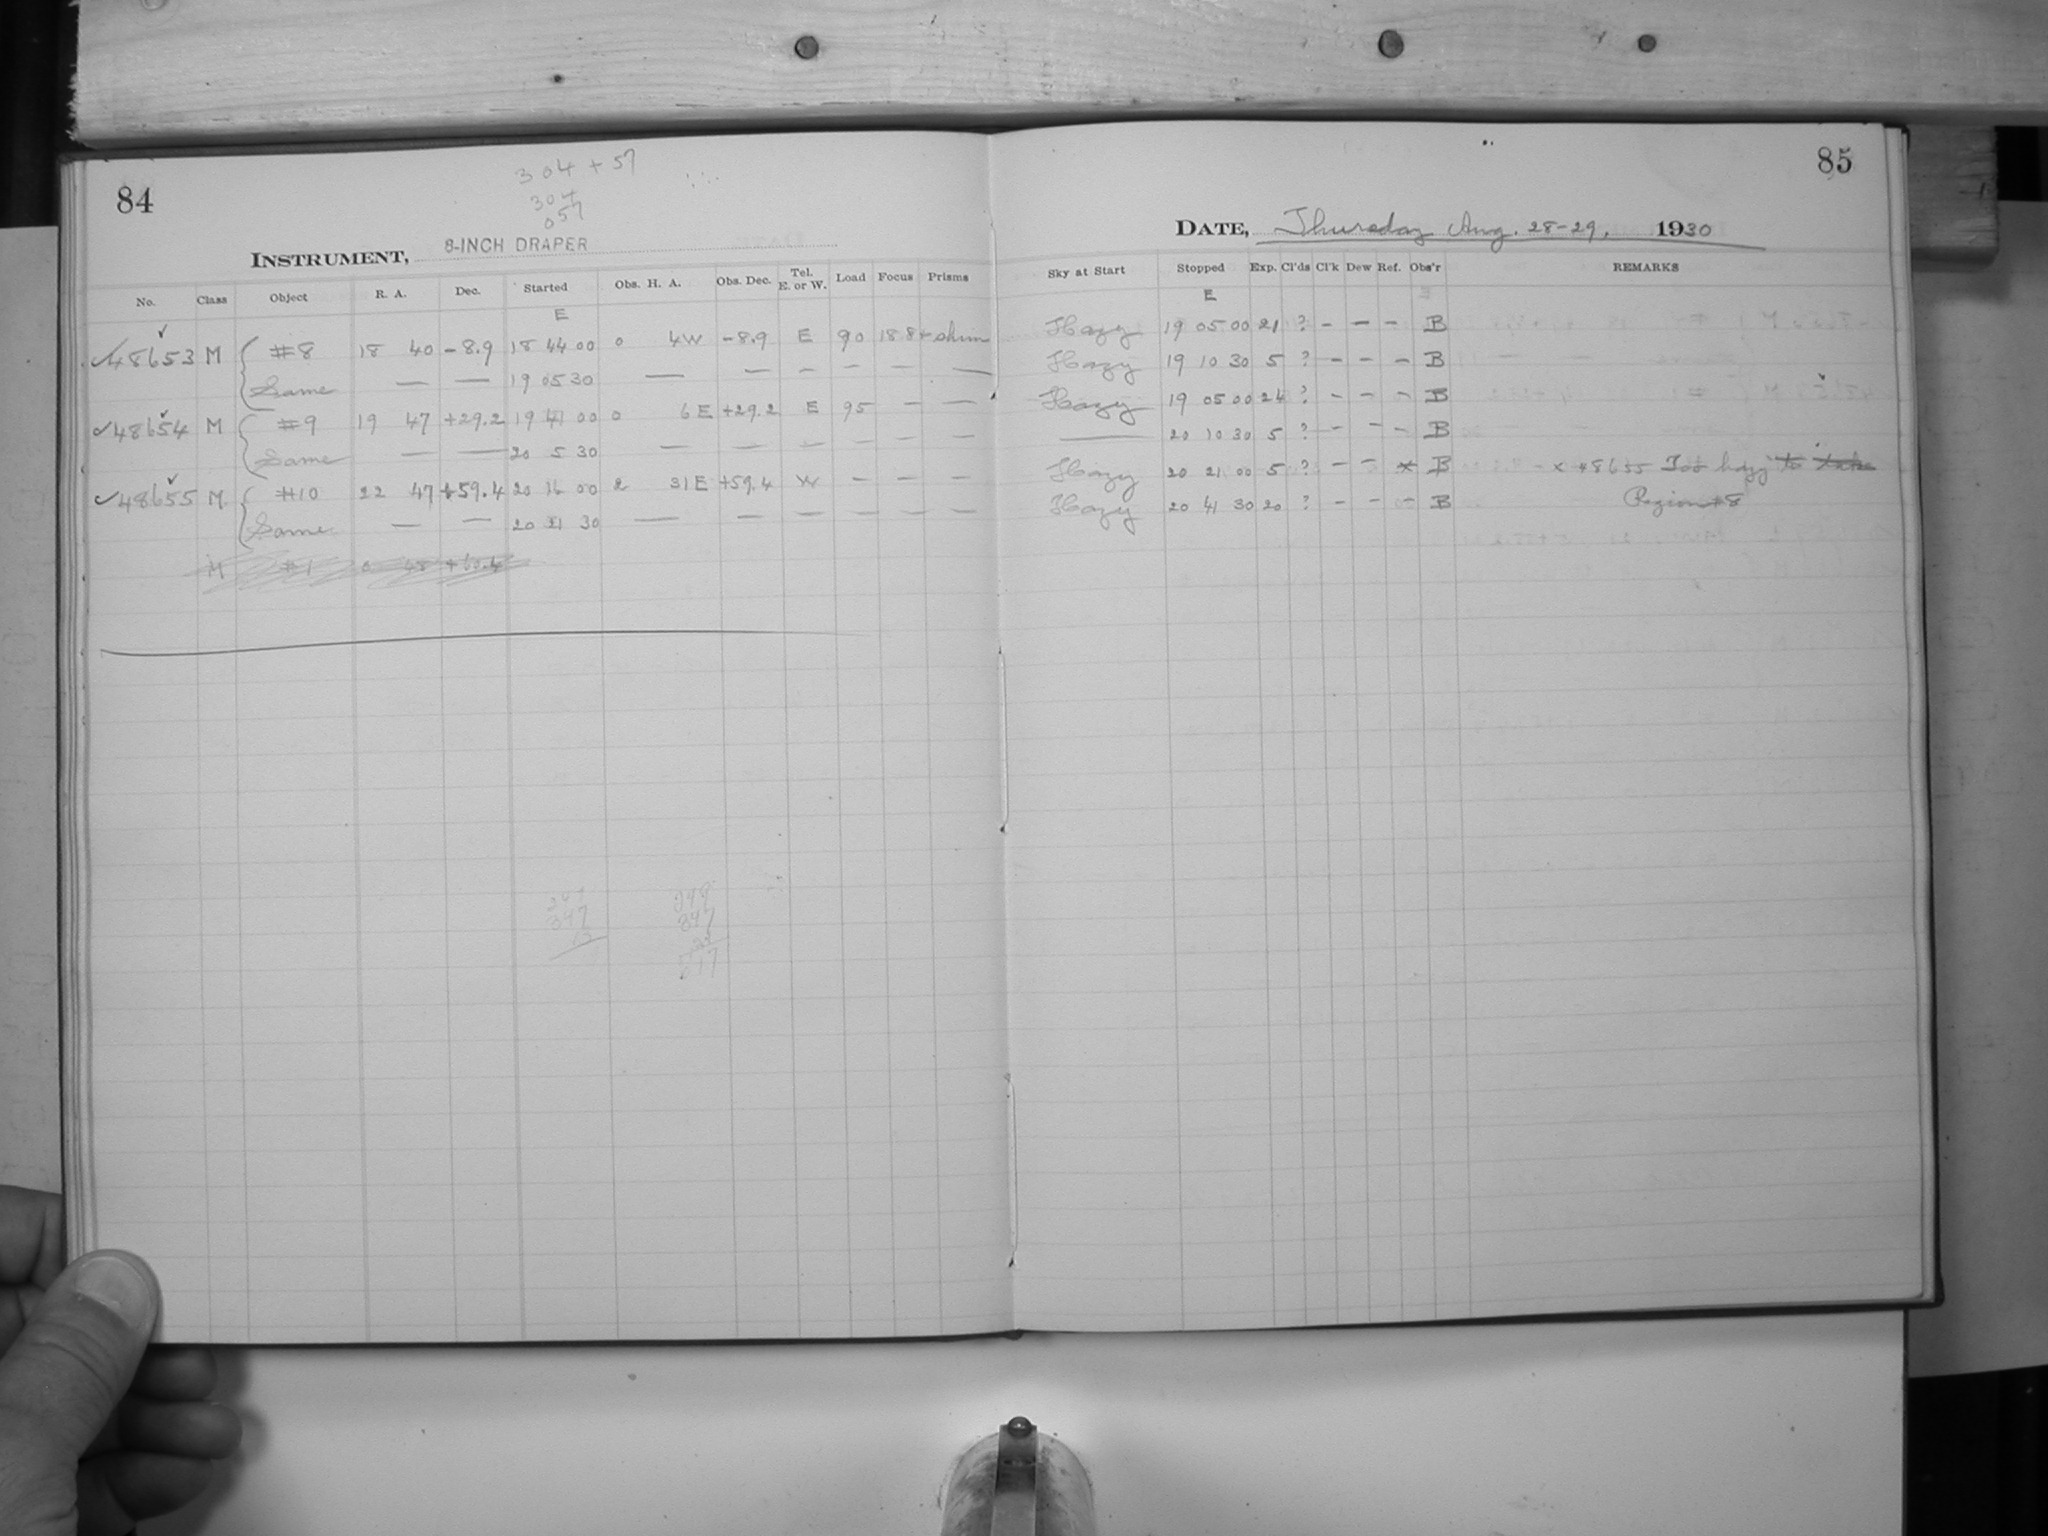 84
304 + 57
304
057
INSTRUMENT, 8-INCH DRAPER
No. Class Object R. A. Dec. Started Obs. H. A. Obs. Dec. Tel. E. or W. Load Focus Prisms
E
48653 M #8 18 40 -8.9 18 44 00 0 4W -8.9 E 90 188+ shim
Same — — 19 05 30 — — — — — —
48654 M #9 19 47 +29.2 19 41 00 0 6E +29.2 E 95 — —
Same — — 20 5 30 — — — — — —
48655 M #10 22 47 +59.4 20 16 00 2 31E +59.4 W — — —
Same — — 20 21 30 — — — — — —
M #1 0 45 +60.4
347
347
85
DATE, Thursday Aug. 28-29, 1930
Sky at Start Stopped Exp. Cl'ds Cl'k Dew Ref. Obs'r REMARKS
E
Hazy 19 05 00 21 ? - - - B
Hazy 19 10 30 5 ? - - - B
Hazy 19 05 00 24 ? - - - B
— 20 10 30 5 ? - - - B
Hazy 20 21 00 5 ? - - x B x 48655 Too hazy to take
Hazy 20 41 30 20 ? - - - B Region #8